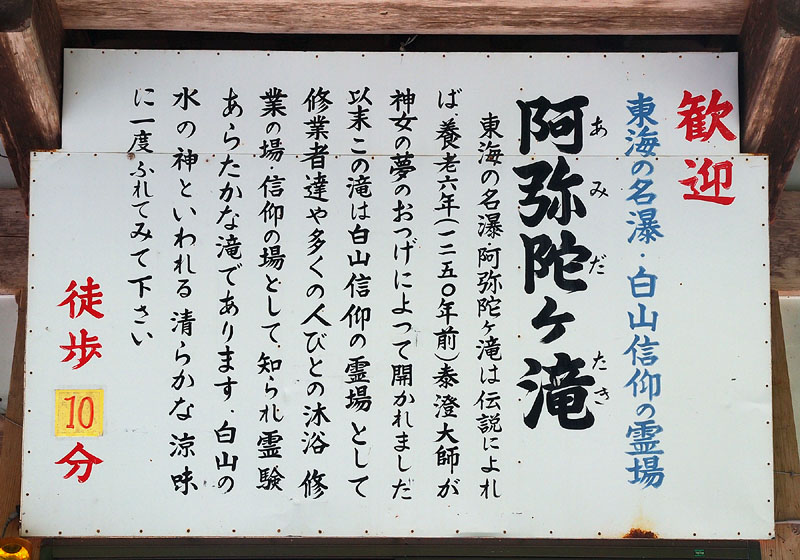 歓迎
東海の名瀑・白山信仰の霊場
阿弥陀ヶ滝
あみだたき
東海の名瀑 阿弥陀ヶ滝は伝説によれ
ば 養老六年(一二五〇年前)泰澄大師が
神女の夢のおつげによって開かれました
以末この滝は白山信仰の霊場 として
修業者達や多くの人びとの沐浴 修
業の場 信仰の場として 知られ 霊験
あらたかな滝であります. 白山の
水の神といわれる清らかな涼味
に一度ふれてみて下さい
徒歩 10 分